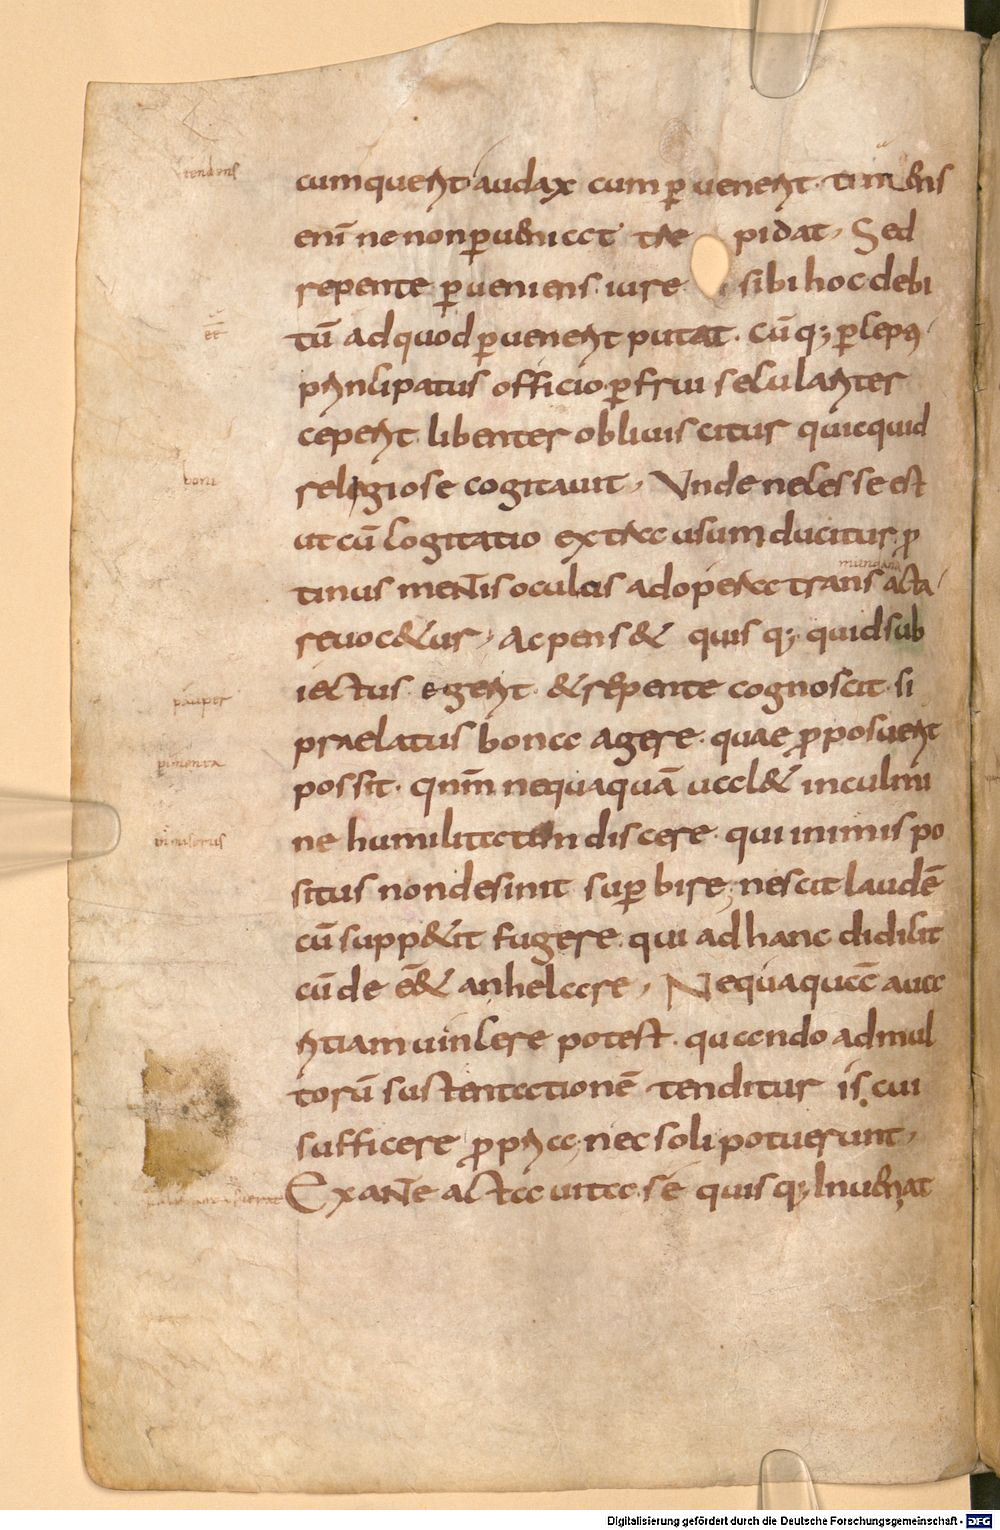 tendens
cumquerit audax cum peruenerit. timens
enī ne non perueniat tre pidat. Sed
repente perueniens iure sibi hoc debi
tū ad quod peruenerit putat. Cūq; percepti
principatus officio perfrui seculariter
ceperit libenter obliuiscitur quicquid
boni
religiose cogitauit. Vnde necesse est
ut cū cogitatio extra usum ducitur pro
mundana
tinus mentis oculus ad opera transacta
reuocetur. Ac penset quisq; quid sub
iectus egerit. et repente cognoscit si
pauper
praelatus bona agere. quae proposuerit
pimenta
possit. qnm nequaquā ualet in culmi
ne humilitatem discere. qui in imis po
situs non desinit superbire; nescit laudē
cū suppetit fugere. qui ad hanc didicit
cū deēet anhelare. Nequaquā aua
ritiam uincere potest. quando ad mul
torū sustentationē tenditur is cui
sufficere propria nec soli potuerunt.
Ex ante acta uita se quisq; inueniat
Digitalisierung gefördert durch die Deutsche Forschungsgemeinschaft - DFG